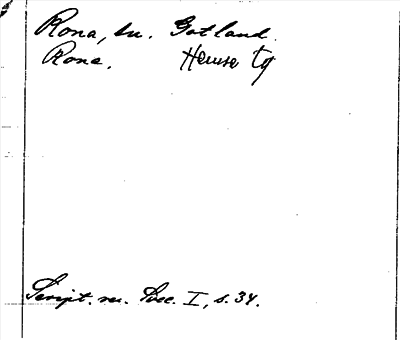 Rona, sn. Gotland.
Rone. Hemse tg
Script. rer. Svec. I, s. 34.